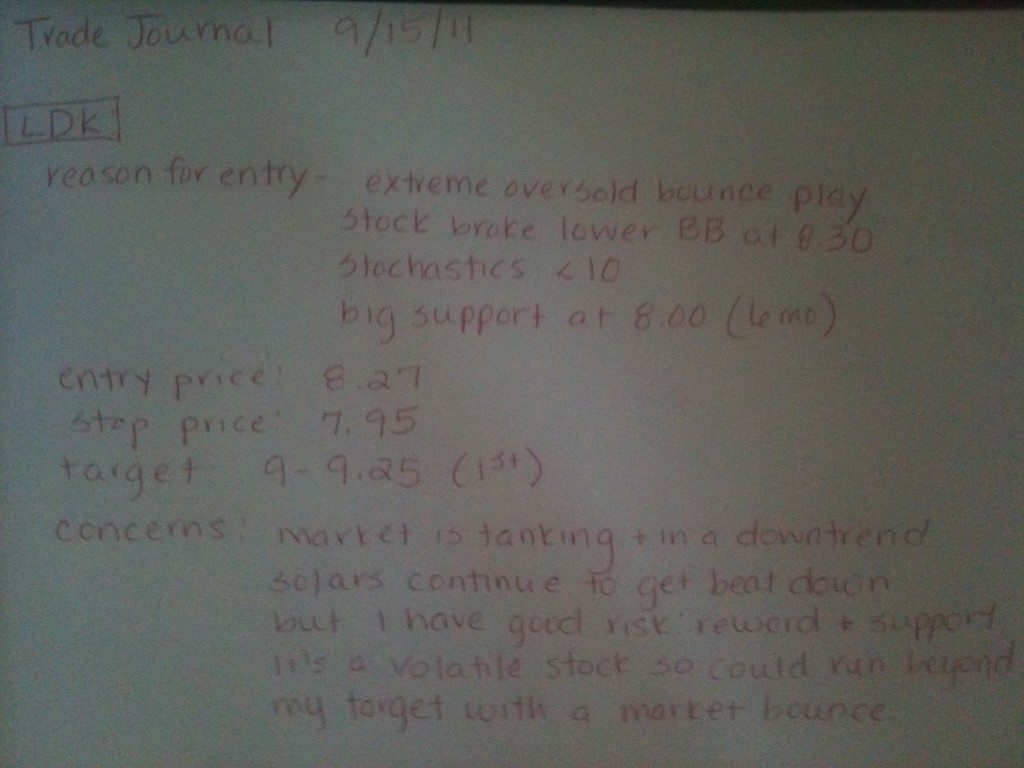 Trade Journal 9/15/11
LDK
reason for entry - extreme oversold bounce play
stock broke lower BB at 8.30
stochastics <10
big support at 8.00 (6 mo)
entry price: 8.27
stop price: 7.95
target 9-9.25 (1st)
concerns: market is tanking + in a downtrend
solars continue to get beat down
but I have good risk:reward + support
It's a volatile stock so could run beyond
my target with a market bounce.